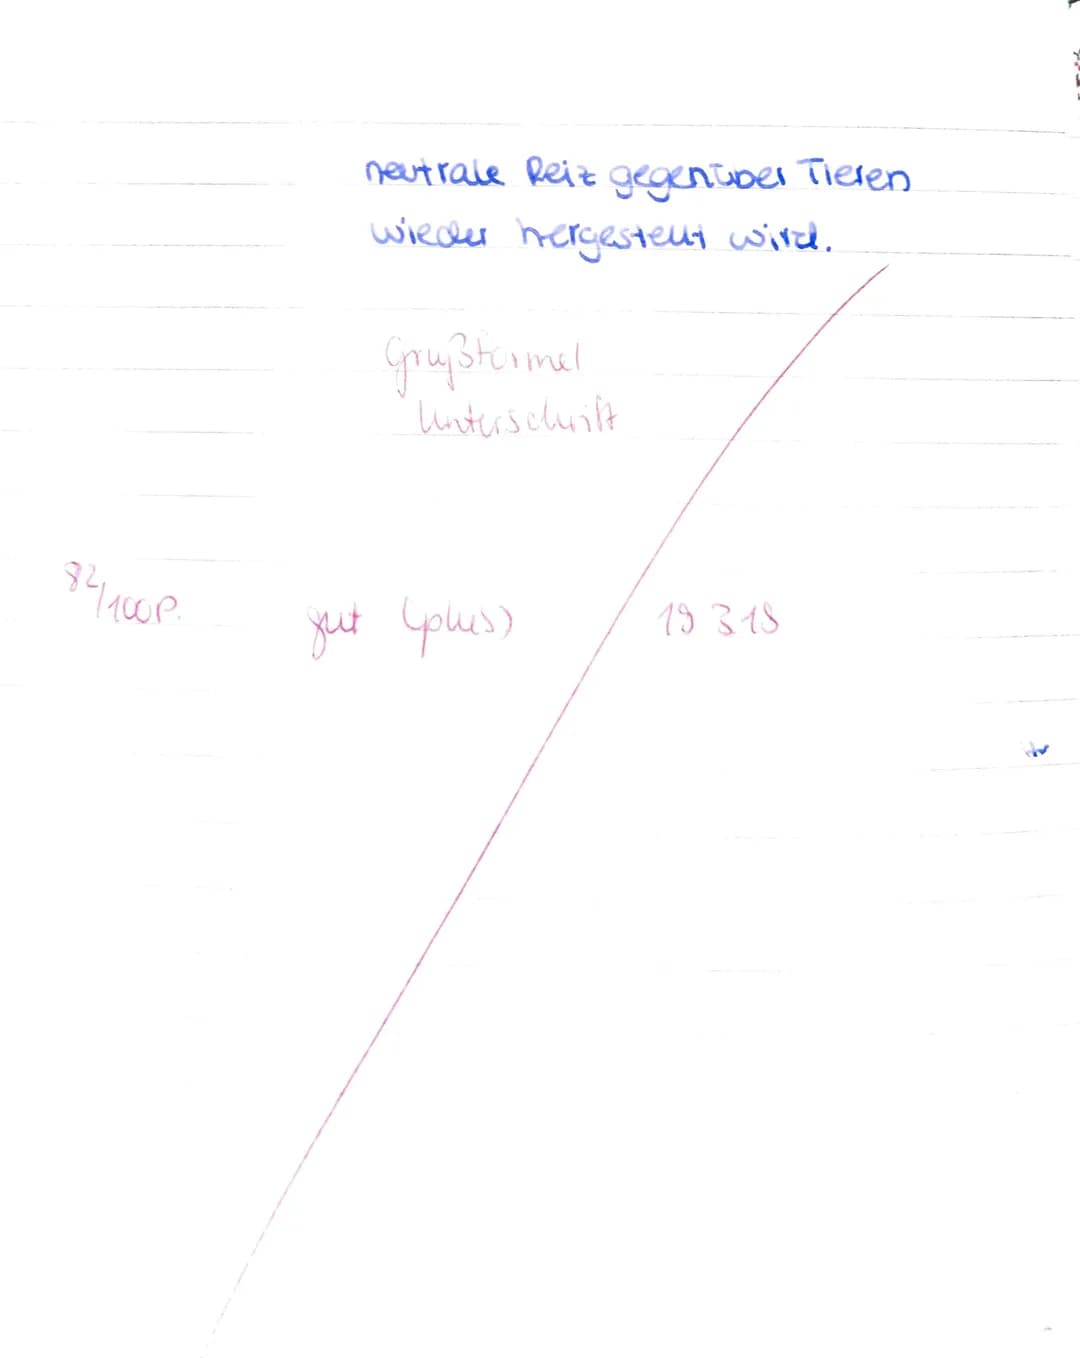 neutrale Reiz gegenüber Tieren
wieder hergestellt wird.
Grußformel
Unterschrift
82/100P. gut (plus) 19 3 19